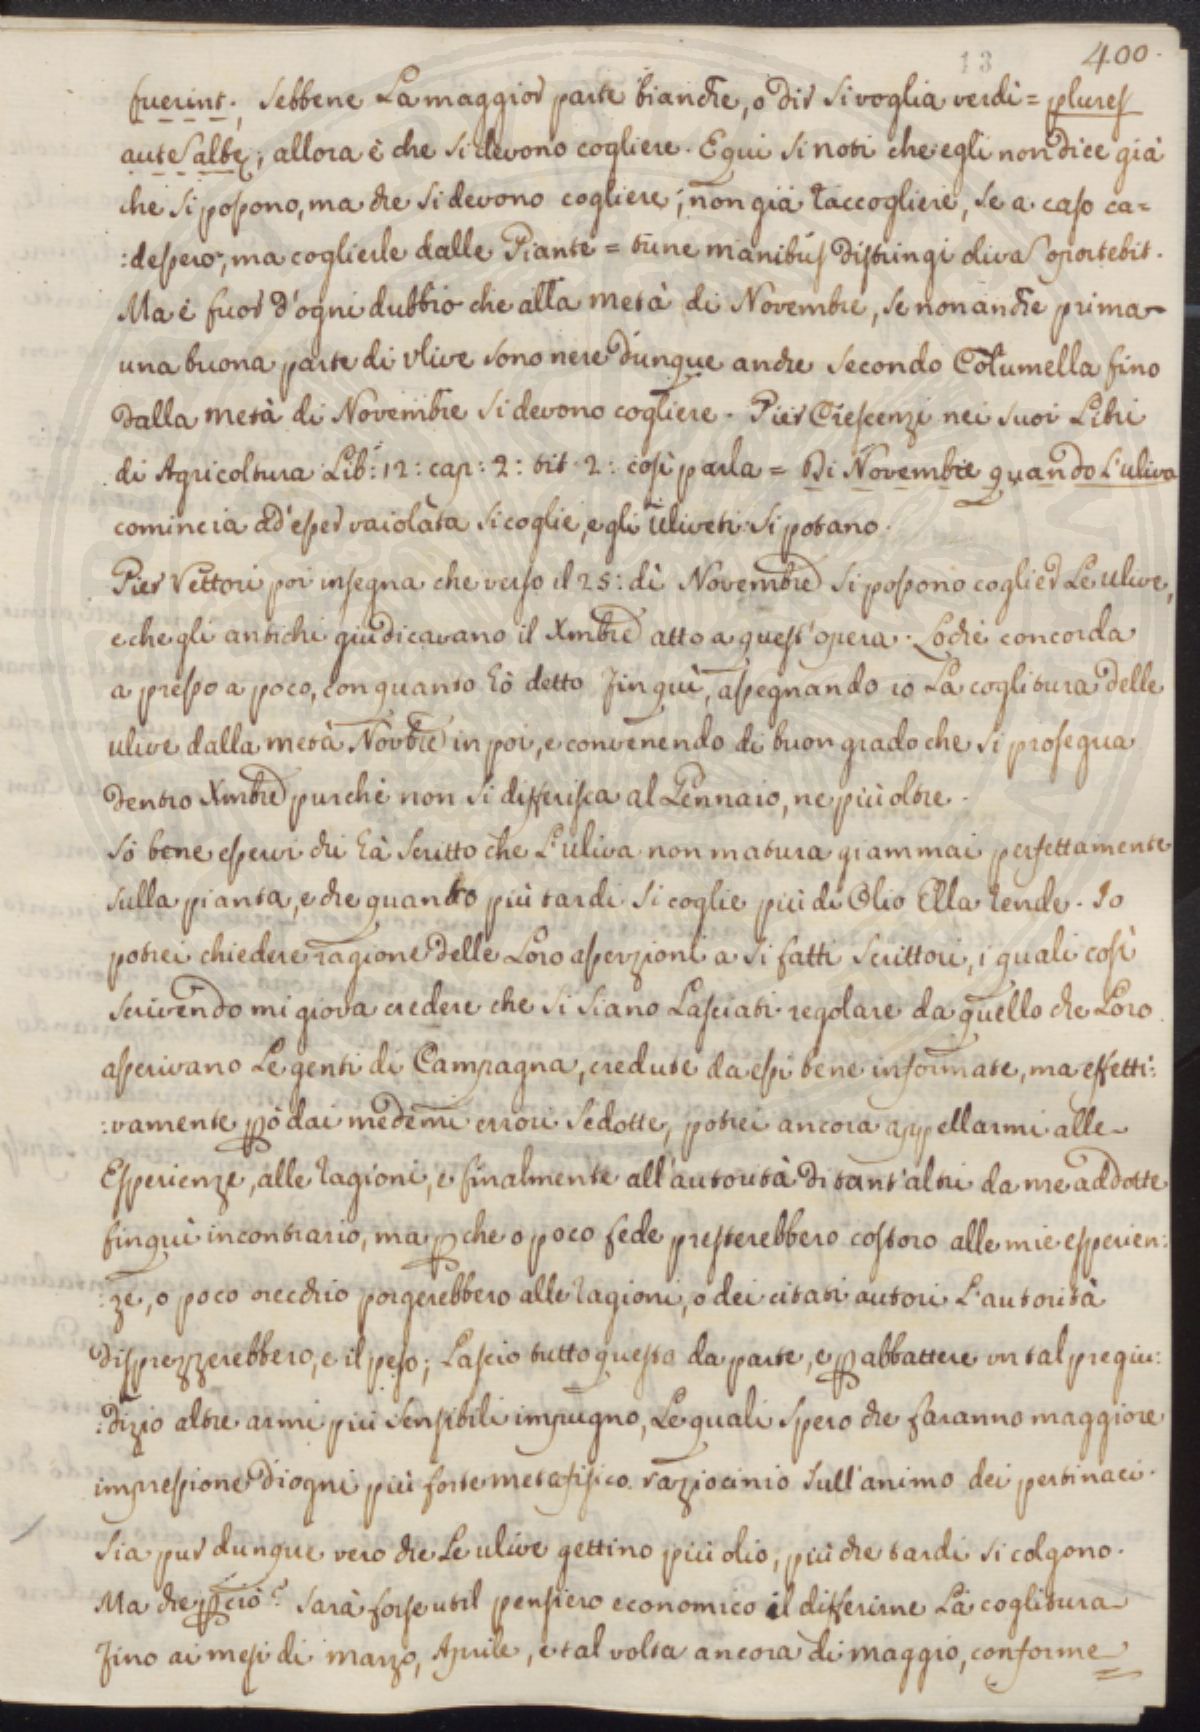 13 400.
fuerint., sebbene La maggior parte bianche, o dir si voglia verdi = plures
autem albę; allora è che si devono cogliere. E qui si noti che egli non dice già
che si possono, ma che si devono cogliere; non già raccogliere, se a caso ca=
:dessero, ma coglierle dalle Piante = tunc manibus distringi olivam oportebit.
Ma è fuor d'ogni dubbio che alla metà di Novembre, se non anche prima
una buona parte di Vlive sono nere dunque anche secondo Columella fino
dalla metà di Novembre si devono cogliere. Pier Crescenzi nei suoi Libri
di Agricoltura Lib: 12: cap: 2: tit. 2: così parla = Di Novembre quando L'uliva
comincia ad'esser vaiolata si coglie, e gli Uliveti si potano.
Pier Vettori poi insegna che verso il 25: di Novembre si possono coglier Le ulive,
e che gli antichi giudicavano il Xmbre atto a quest'opera. Loche concorda
a presso a poco, con quanto hò detto finquì, assegnando io La coglitura delle
ulive dalla metà Novbre in poi, e convenendo di buon grado che si prosegua
dentro Xmbre purchè non si differisca al Gennaio, ne più oltre.
Sò bene esservi chi hà scritto che L'uliva non matura giammai perfettamente
sulla pianta, e che quanto più tardi si coglie più di Olio Ella rende. Io
potrei chiedere ragione delle Loro asserzioni a si fatti scrittori, i quali così
scrivendo mi giova credere che si siano Lasciati regolare da quello che Loro
asserivano Le genti di Campagna, credute da essi bene informate, ma effetti:
:vamente pò dai medemi errori sedotte, potrei ancora appellarmi alle
Esperienze, alle ragioni, e finalmente all'autorità di tant'altri da me addotte
finquì incontrario, ma pche o poco fede presterebbero costoro alle mie esperien:
:ze, o poco orecchio porgerebbero alle ragioni, o dei citati autori L'autorità
disprezzerebbero, e il peso; Lascio tutto questo da parte, e p abbattere un tal pregiu:
:dizio altre armi più sensibili impugno, Le quali spero che faranno maggiore
impressione d'ogni più forte metafisico raziocinio sull'animo dei pertinaci.
Sia pur dunque vero che Le ulive gettino più olio, più che tardi si colgono.
Ma che pciò? sarà forse util pensiero economico il differirne La coglitura
fino ai mesi di marzo, Aprile, e tal volta ancora di maggio, conforme